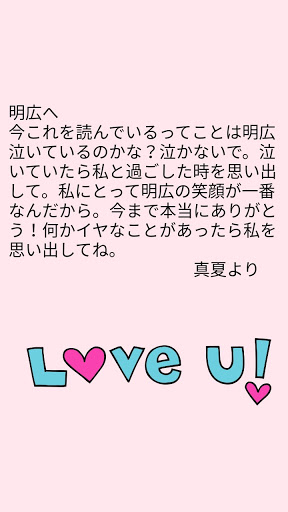 明広へ
今これを読んでいるってことは明広
泣いているのかな？泣かないで。泣
いていたら私と過ごした時を思い出
して。私にとって明広の笑顔が一番
なんだから。今まで本当にありがと
う！何かイヤなことがあったら私を
思い出してね。
真夏より
Love U!